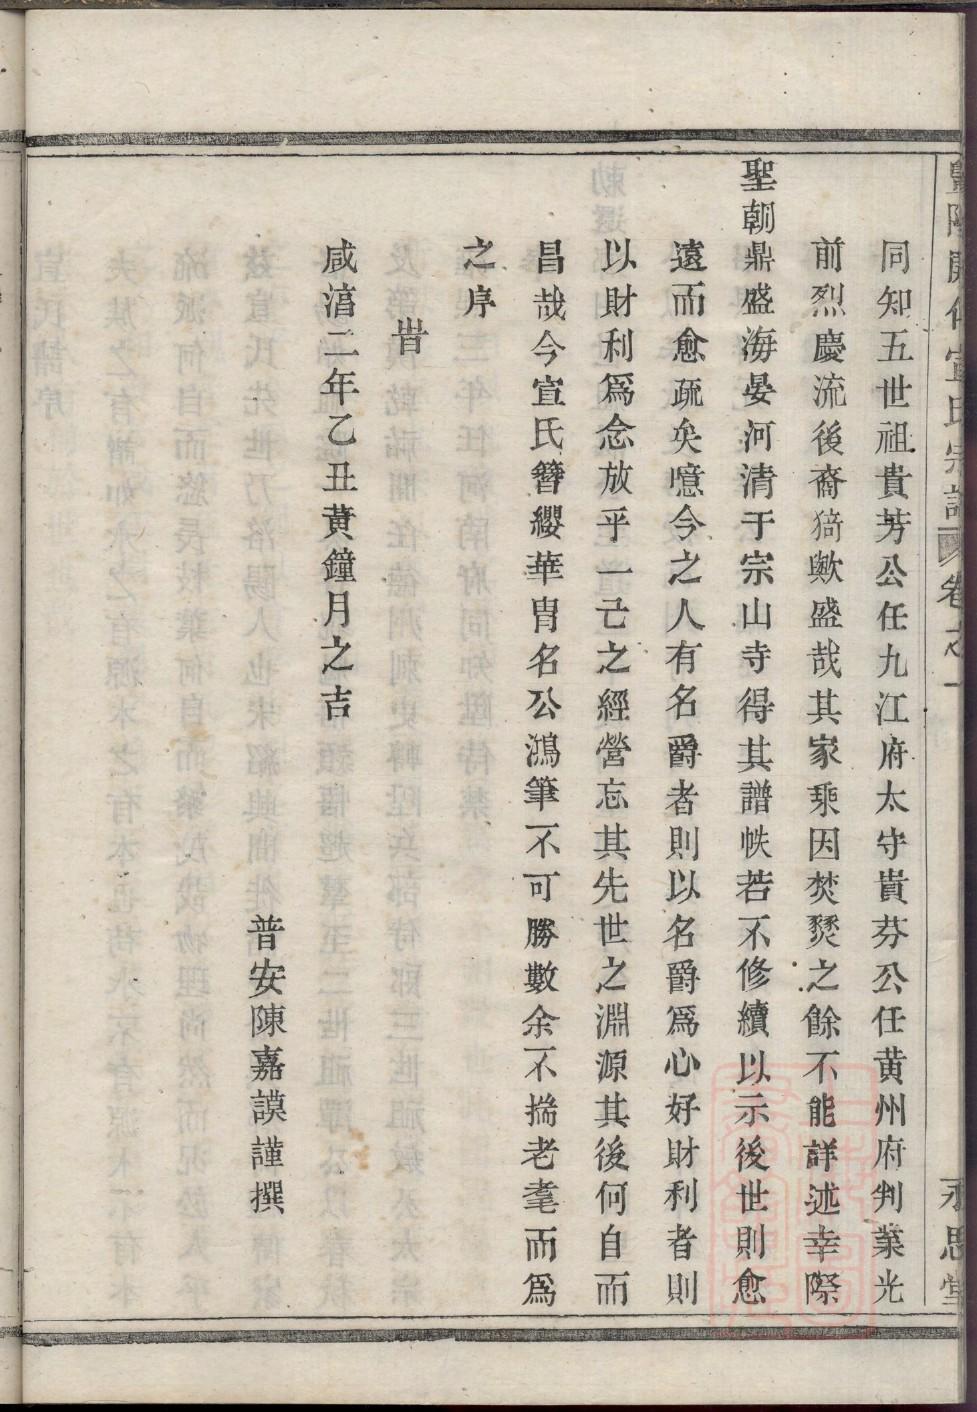 暨陽開化宣氏宗譜 卷之一 永思堂
同知五世祖貴芳公任九江府太守貴芬公任黄州府判業光
前烈慶流後裔猗歟盛哉其家乘因焚燹之餘不能詳述幸際
聖朝鼎盛海晏河清于宗山寺得其譜帙若不修續以示後世則愈
遠而愈疏矣噫今之人有名爵者則以名爵爲心好財利者則
以財利爲念放乎一己之經營忘其先世之淵源其後何自而
昌哉今宣氏簪纓華胄名公鴻筆不可勝數余不揣老耄而爲
之序
旹
咸淳二年乙丑黄鐘月之吉
普安陳嘉謨謹撰